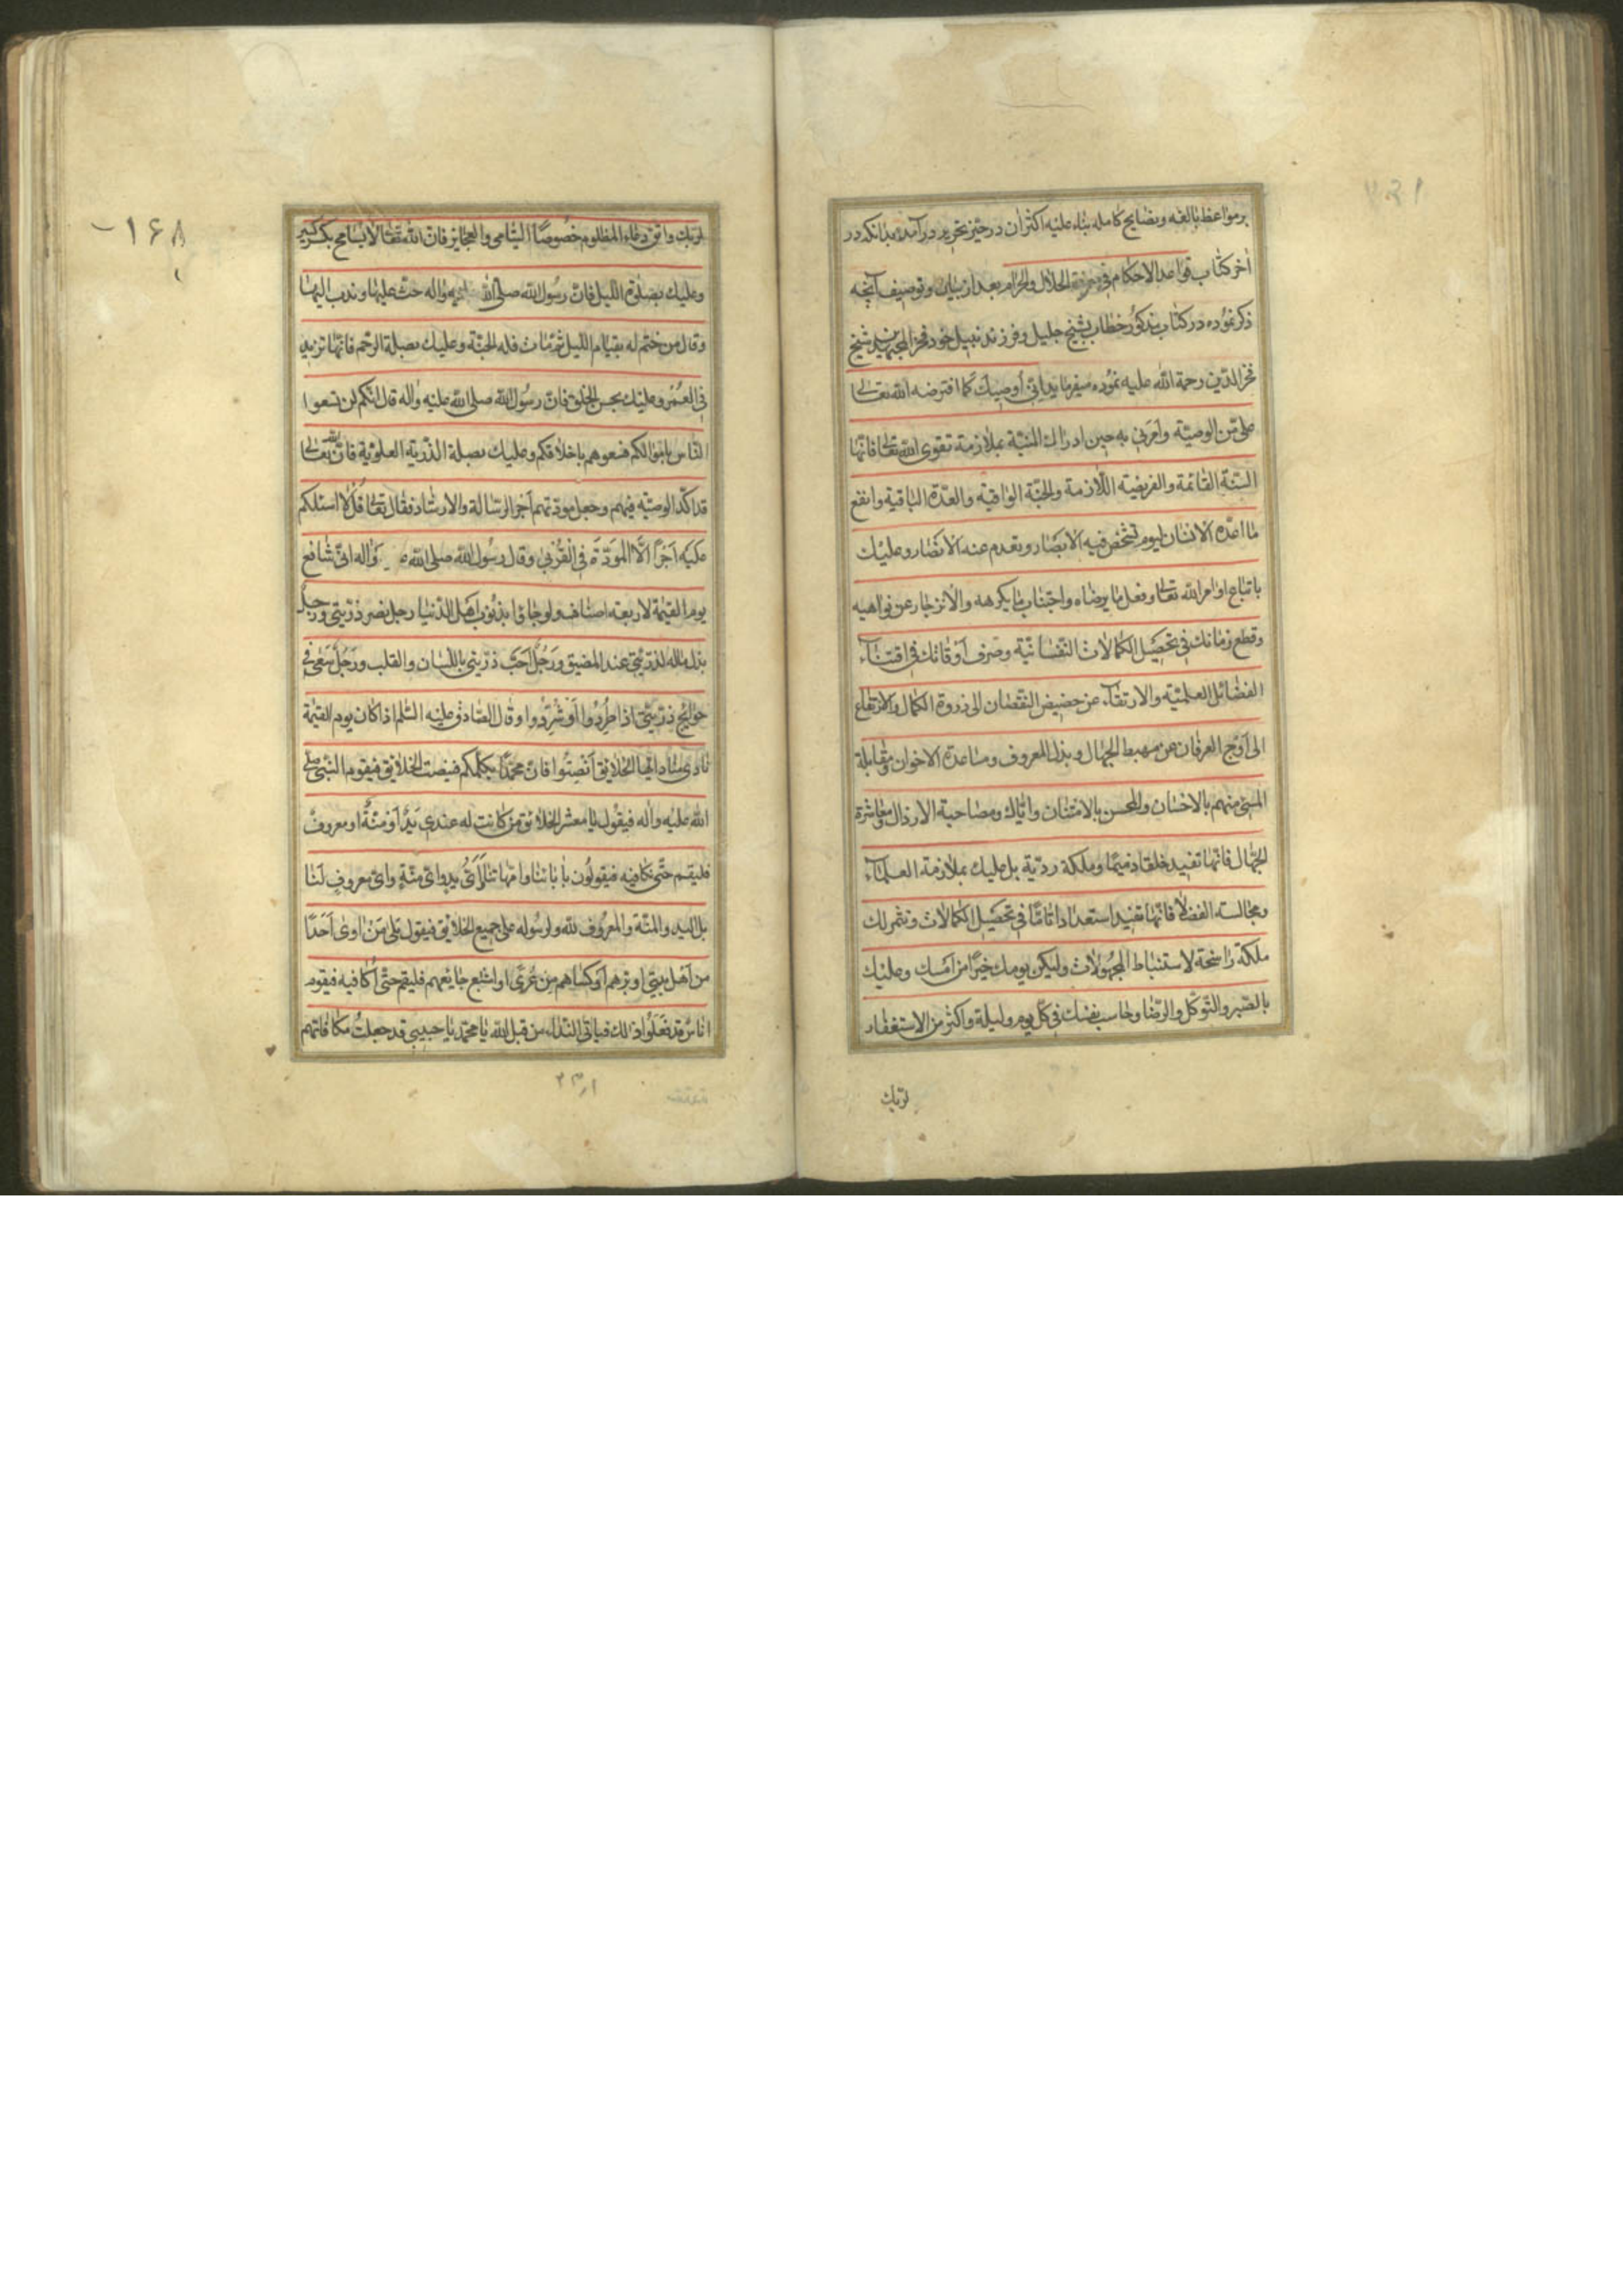 برمواعظ بالغه ونصایح کامله بناء علیه اکثر ان در حیز تحریر درآمد بدانکه در
آخر کتاب قواعد الاحکام فی معرفة الحلال والحرام بعد از بیان وتوصیف آنچه
ذکر نموده در کتاب مذکور خطاب بشیخ جلیل وفرزند نبیل خود فخر المجتهدین شیخ
فخر الدین رحمة الله علیه نموده میفرماید انی أوصیک کما افترضه الله تعالی
علی من الوصیّة وأمرنی به حین ادراک المنیّة بملازمة تقوی الله تعالی فانّها
السنّة القائمة والفریضة اللّازمة والجنّة الواقیة والعدّة الباقیة وانفع
ما اعدّه الانسان لیوم تشخص فیه الابصار ویعدم عنه الانصار وعلیک
باتباع اوامر الله تعالی وفعل ما یرضاه واجتناب ما یکرهه والانزجار عن نواهیه
وقطع زمانک فی تحصیل الکمالات النّفسانیّة وصرف أوقاتک فی اقتناء
الفضائل العلمیّة والارتقاء عن حضیض النّقصان الی ذروة الکمال والارتفاع
الی أوج العرفان عن مهبط الجهال وبذل المعروف ومساعدة الاخوان ومقابلة
المسیء منهم بالاحسان والمحسن بالامتنان وایّاک ومصاحبة الارذال ومعاشرة
الجهّال فانّها تفید خلقا ذمیمًا وملکة ردیّة بل علیک بملازمة العلماء
ومجالسة الفضلاء فانّها تفید استعدادا تامّا فی تحصیل الکمالات وتثمر لک
ملکة راسخة لاستنباط المجهولات ولیکن یومک خیرًا من أمسک وعلیک
بالصّبر والتّوکّل والرّضا وحاسب نفسک فی کلّ یوم ولیلة واکثر من الاستغفار
لربّک
۱۶۸
لربک واتق دعاء المظلوم خصوصًا الیتامی والعجایز فانّ الله تعالی لا یسامح بکسر کسیر
وعلیک بصلوة اللّیل فانّ رسول الله صلی الله علیه واله حثّ علیها وندب الیها
وقال من ختم له بقیام اللیل ثم مات فله الجنّة وعلیک بصلة الرّحم فانّها تزید
فی العُمُر وعلیک بحسن الخلق فانّ رسول الله صلی الله علیه واله قال انّکم لن تسعوا
النّاس باموالکم فسعوهم باخلاقکم وعلیک بصلة الذّریة العلویّة فانّ الله تعالی
قد اکّد الوصیّة فیهم وجعل مودّتهم أجر الرسالة والارشاد فقال تعالی قُل لا اسئلکم
علیه أجرًا الّا المودّة فی القُربی وقال رسول الله صلی الله واله انّی شافع
یوم القیمة لاربعة اصناف ولو جاؤا بذنوب أهل الدّنیا رجل نصر ذرّیتی ورجل
بذل ماله لذرّیتی عند المضیق ورجُلٌ أحبّ ذرّیتی باللّسان والقلب ورجُلٌ سعی فی
حوایج ذرّیتی اذا طُرِدُوا أو شُرِّدُوا وقال الصّادق علیه السّلم اذا کان یوم القیمة
نادی مناد ایّها الخلایق أنصِتُوا فانّ محمّدًا یکلّمکم فینصت الخلایق فیقوم النّبی صلی
الله علیه واله فیقول یا معشر الخلائق من کانت له عندی یدٌ أو منّةٌ او معروفٌ
فلیقم حتّی اکافیه فیقولون بآبائنا وامّهاتنا وأیّ یدٍ وایّ منّةٍ وایّ معروفٍ لنا
بل الید والمنّة والمعروف لله ولرسوله علی جمیع الخلایق فیقول بلی من اوی أحدًا
من أهل بیتی او برّهم أو کساهم من عُریً او اشبع جایعهم فلیقم حتّی أکافیه فیقوم
اناسٌ قد فَعَلُوا ذلک فیاتی النداء من قبل الله یا محمّد یا حبیبی قد جعلتُ مکافاتهم